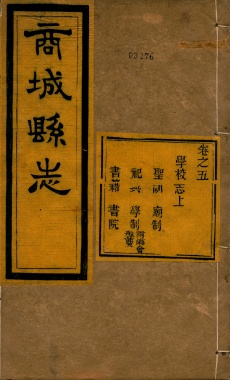 商城縣志
卷之五
學校志上
聖訓 廟制
祀典 學制
書籍 書院